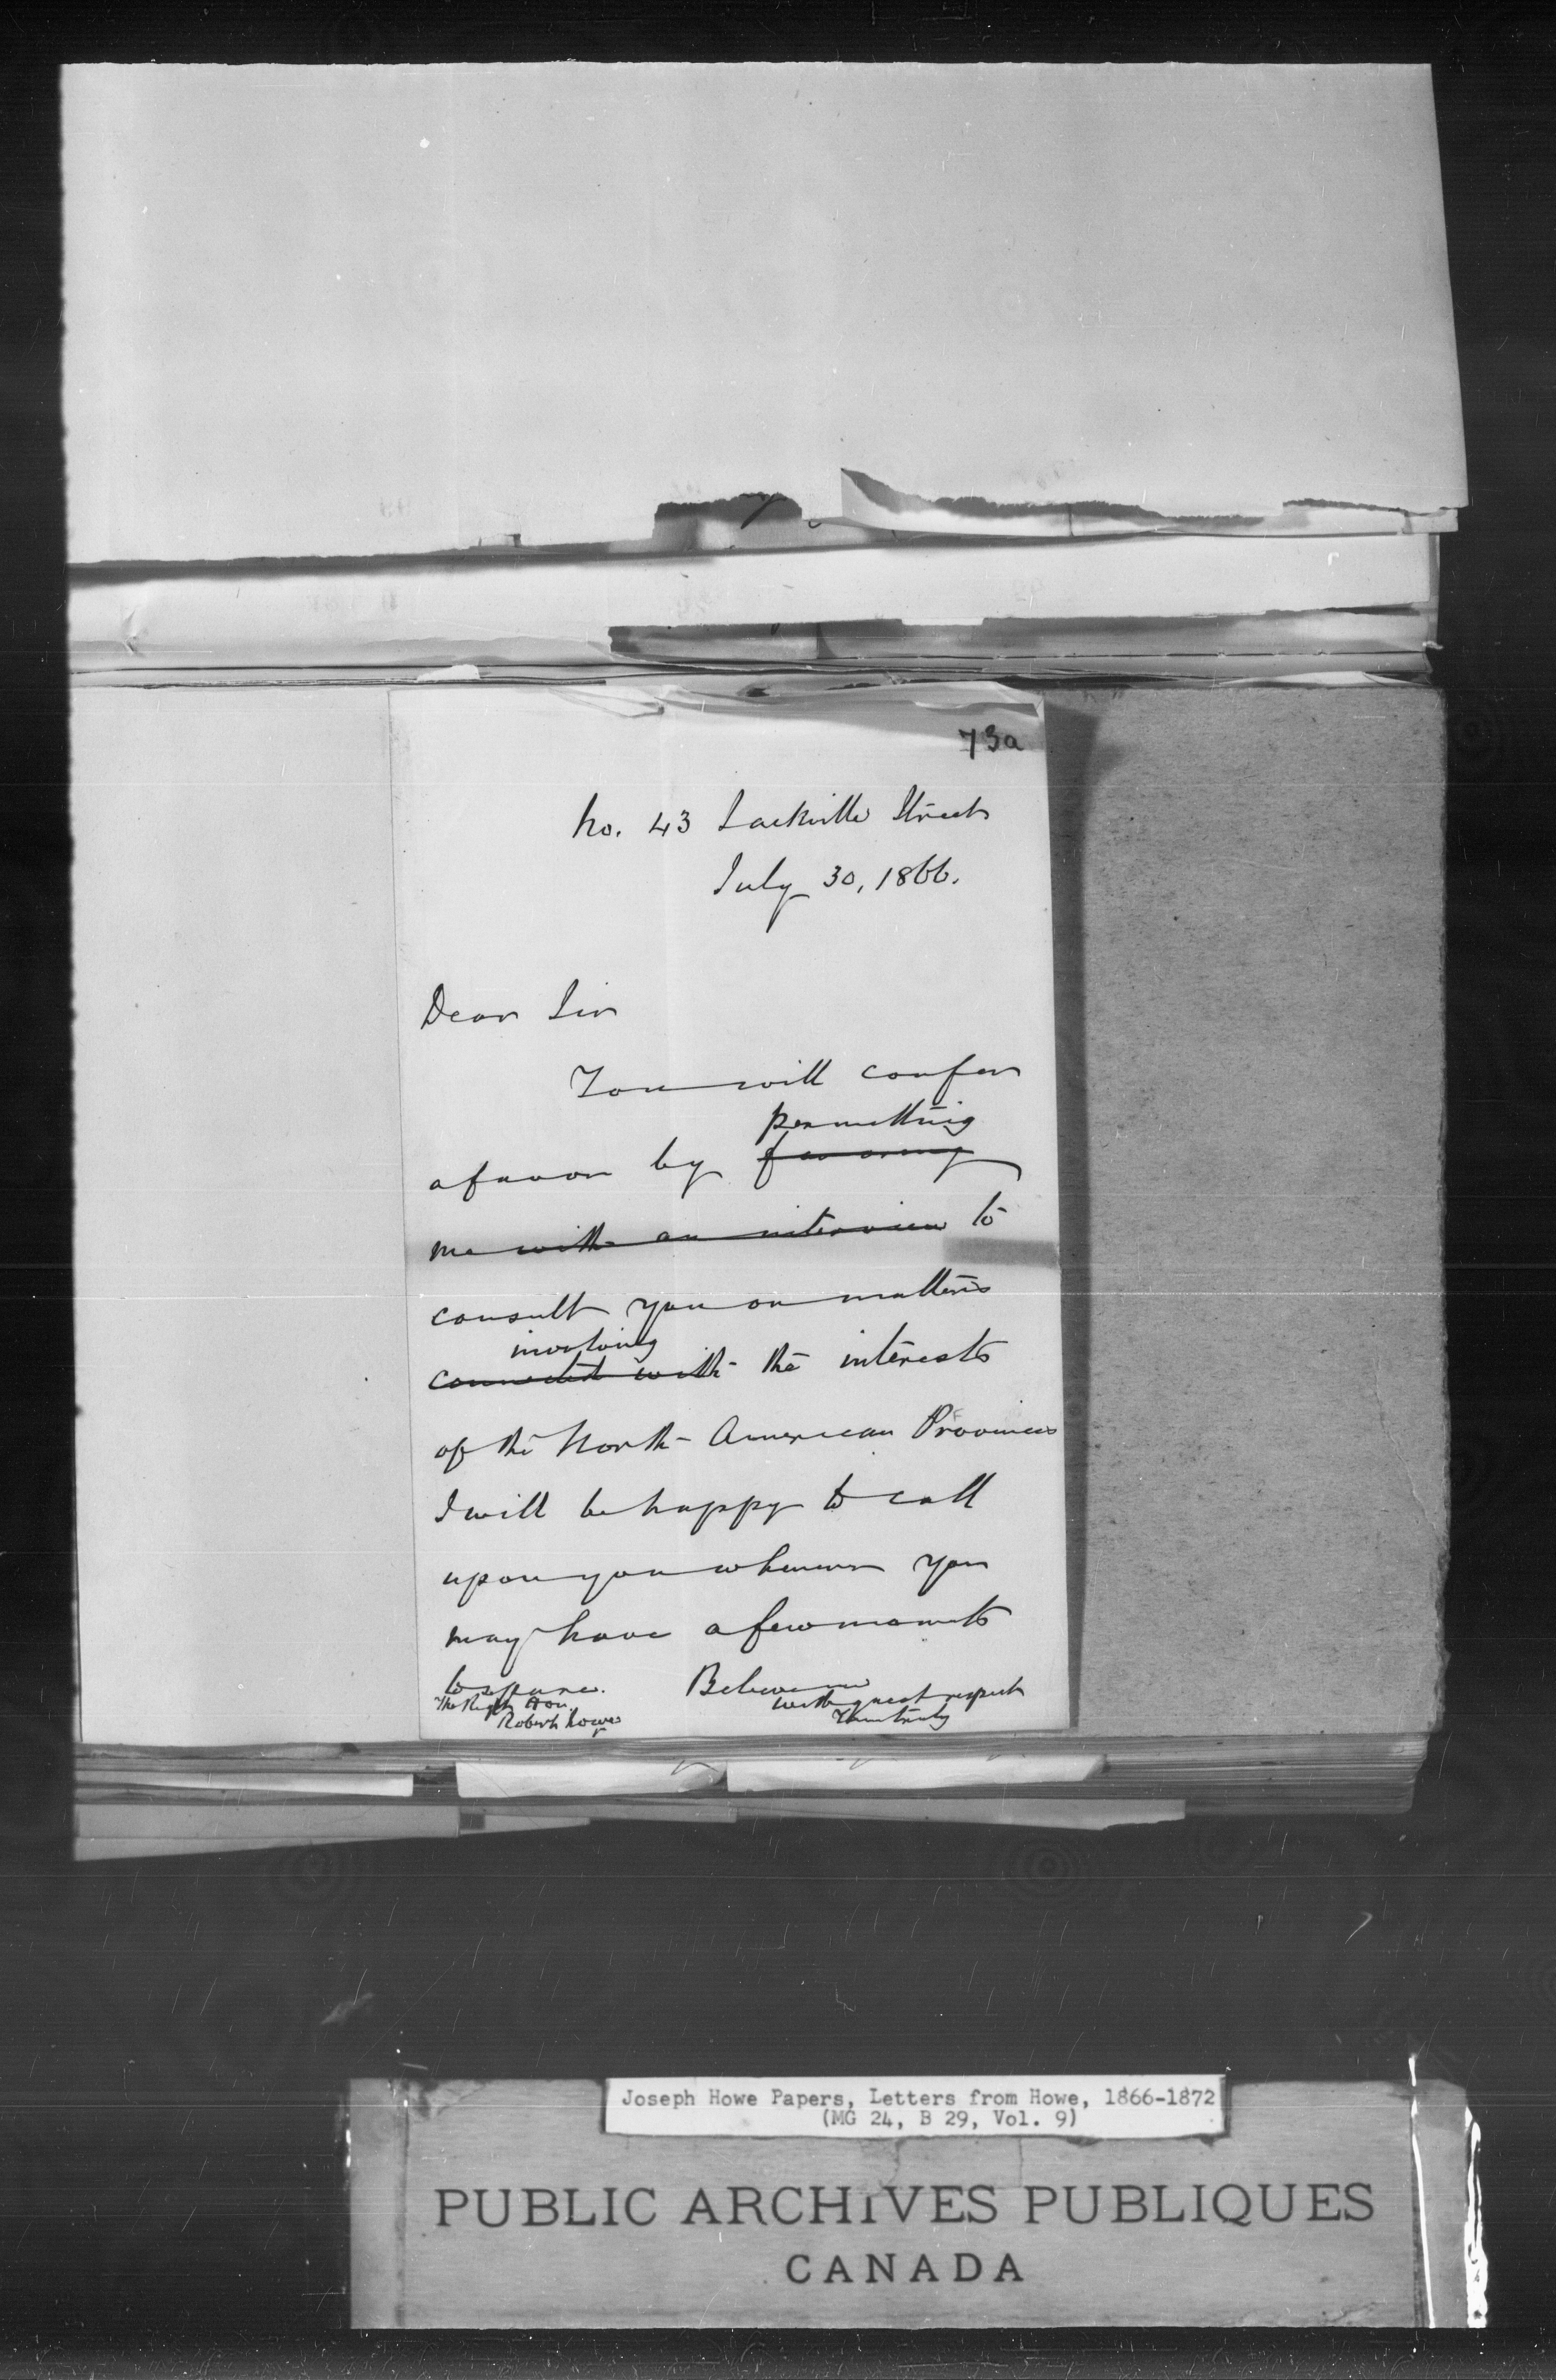 73a
No. 43 Sackville Street
July 30, 1866.
Dear Sir
You will confer
permitting
a favor by favoring
me with an interview to
consult you on matters
involving
connected with the interests
of the North American Provinces
I will be happy to call
upon you whenever you
may have a few moments
to spare. Believe me
with great respect
Yours truly
The Right Hon.
Robert Lowe
Joseph Howe Papers, Letters from Howe, 1866-1872
(MG 24, B 29, Vol. 9)
PUBLIC ARCHIVES PUBLIQUES
CANADA